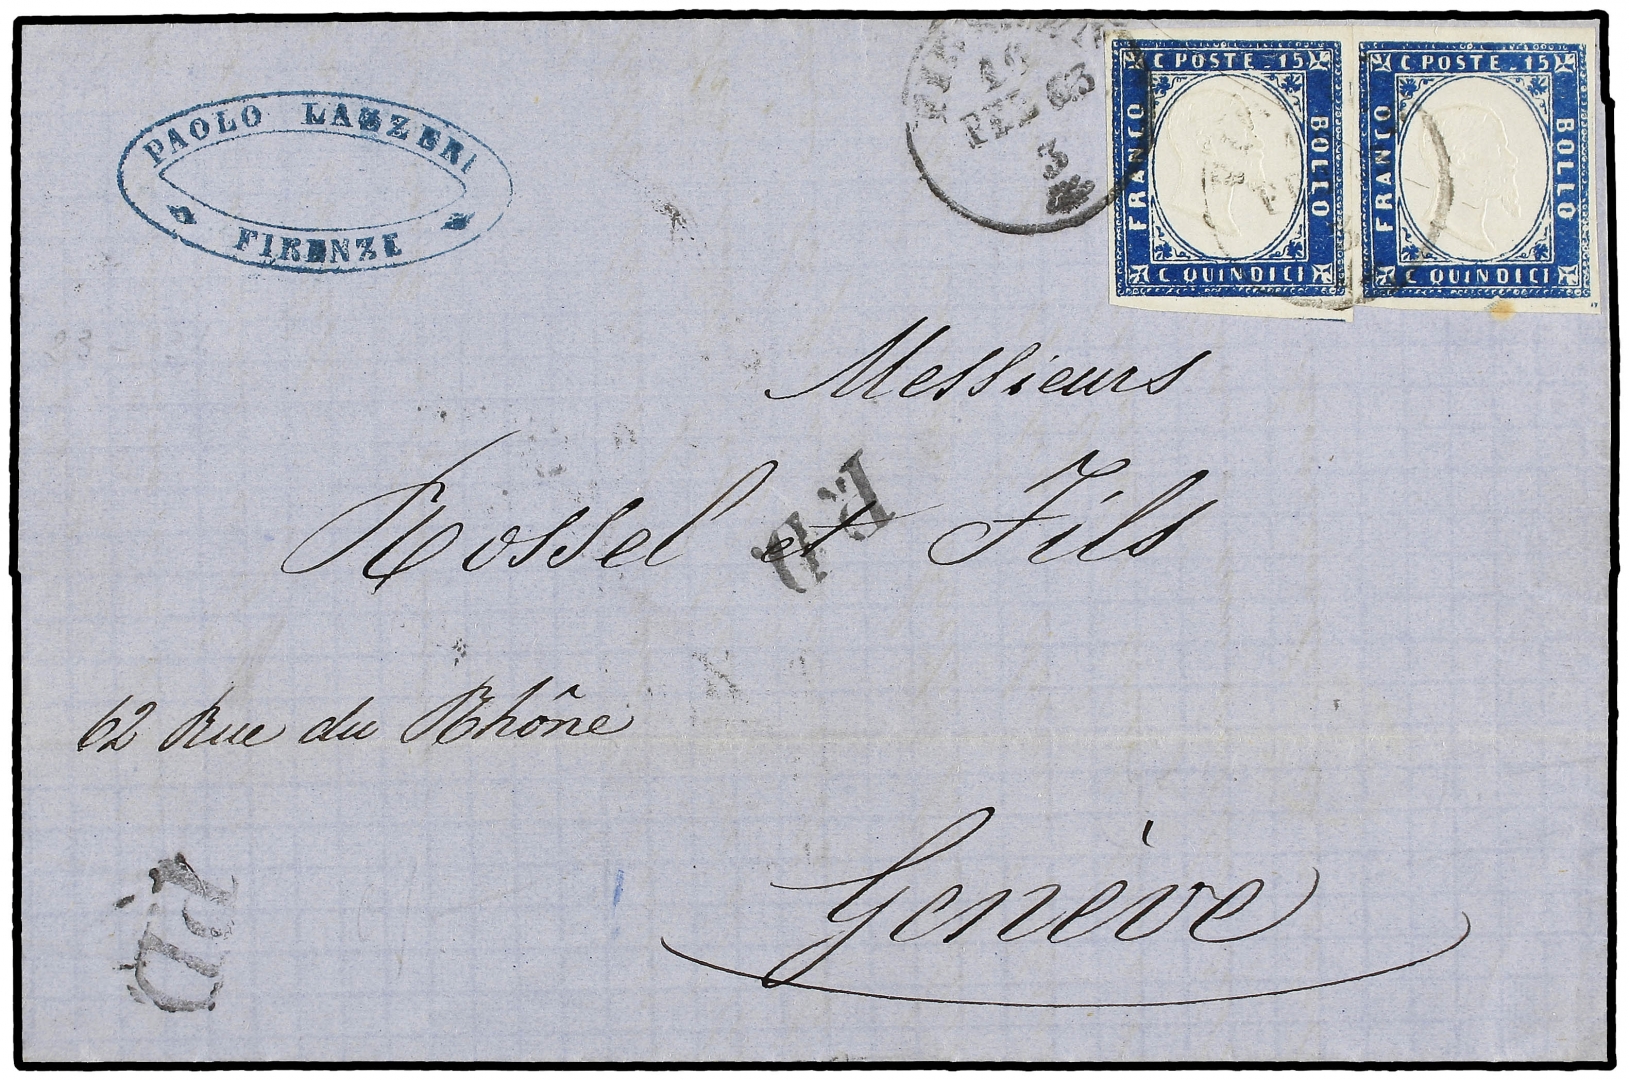 PAOLO LAZZERI
FIRENZE
18
FEB 63
3
C POSTE .15
FRANCO
BOLLO
C QUINDICI
C POSTE .15
FRANCO
BOLLO
C QUINDICI
Messieurs
Rossel et Fils
P.D
62 Rue du Rhône
Genève
P.D